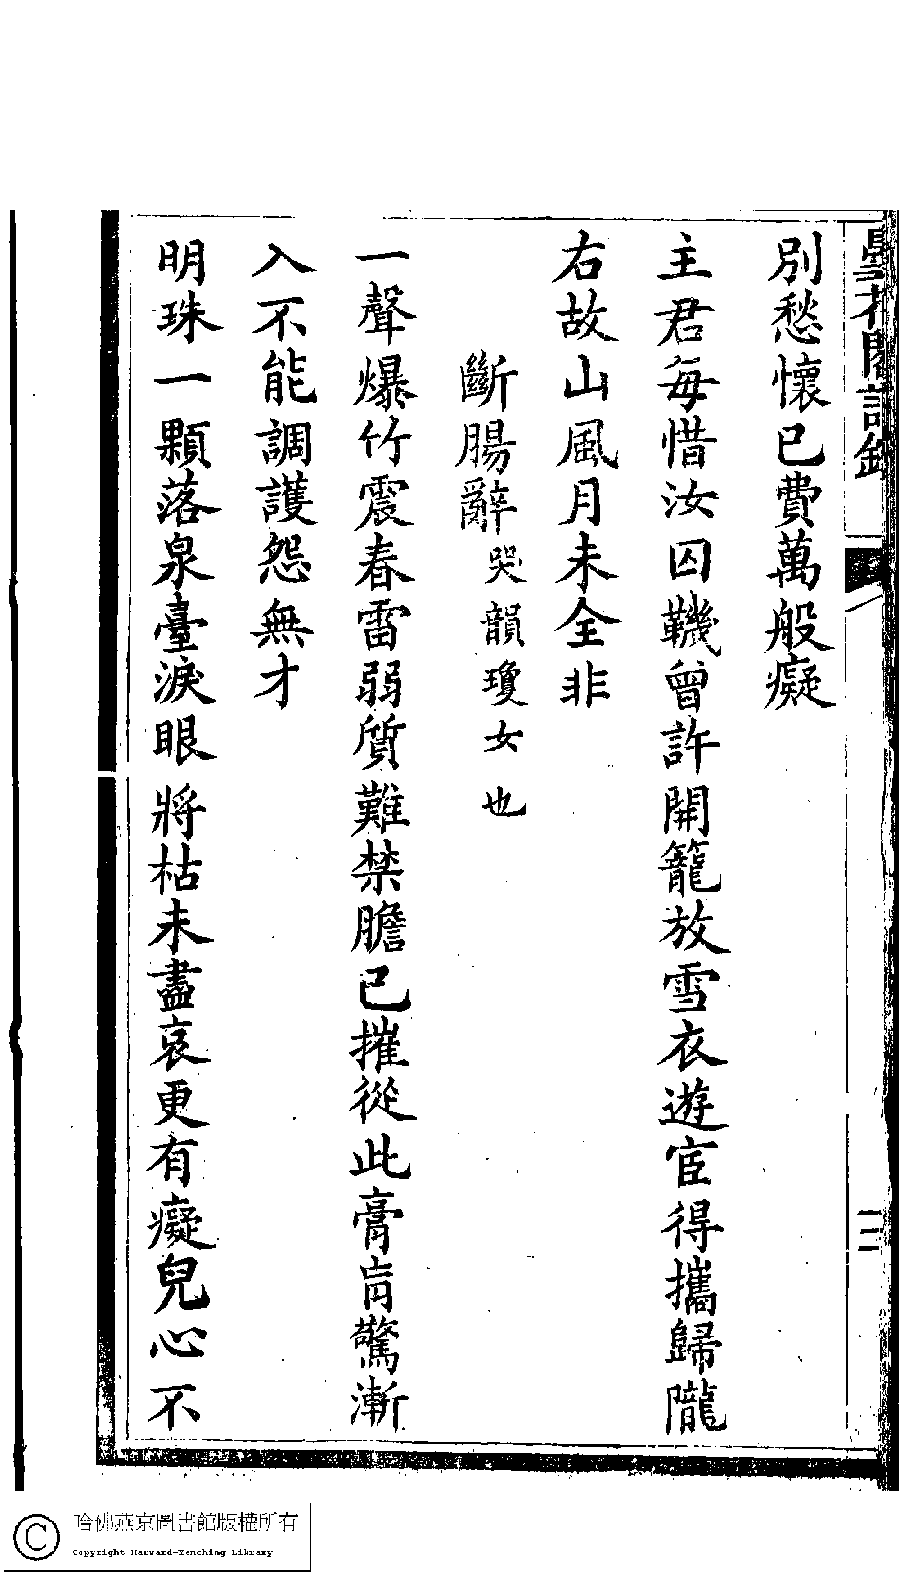 曇花閣詩鈔
二
別愁懷已費萬般癡
主君每惜汝囚鞿曾許開籠放雪衣遊宦得攜歸隴
右故山風月未全非
斷腸辭哭韻瓊女也
一聲爆竹震春雷弱質難禁膽已摧從此膏肓驚漸
入不能調護怨無才
明珠一顆落泉臺淚眼將枯未盡哀更有癡兒心不
哈佛燕京圖書館版權所有
Copyright Harvard-Yenching Library